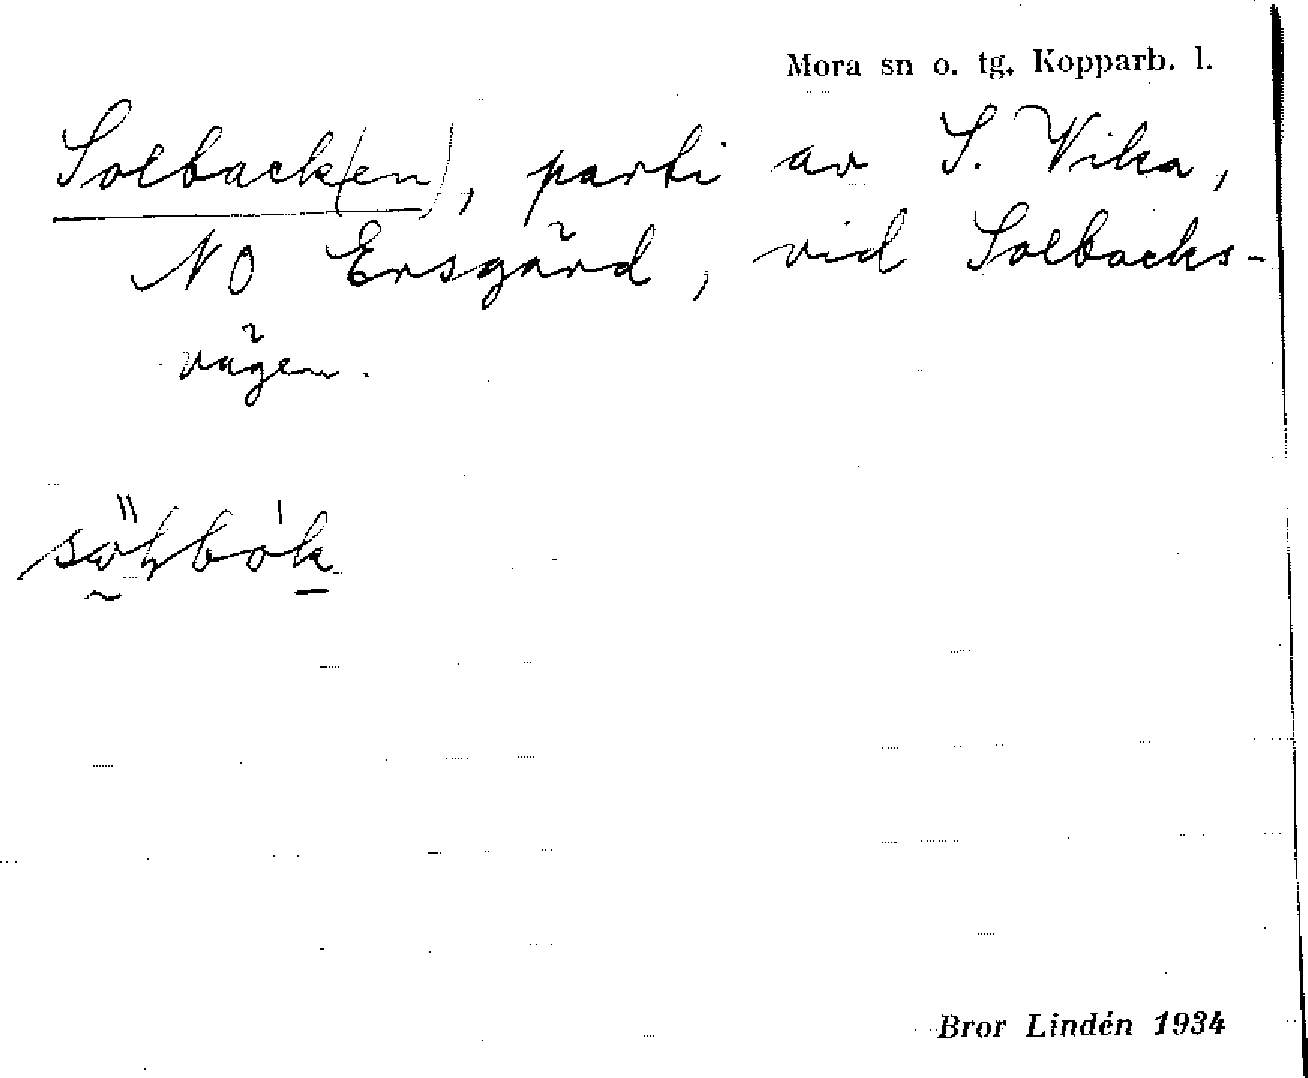 Mora sn o. tg. Kopparb. l.
Solback(en), parti av S. Vika,
NO Ersgård, vid Solbacks-
vägen.
Bror Lindén 1934